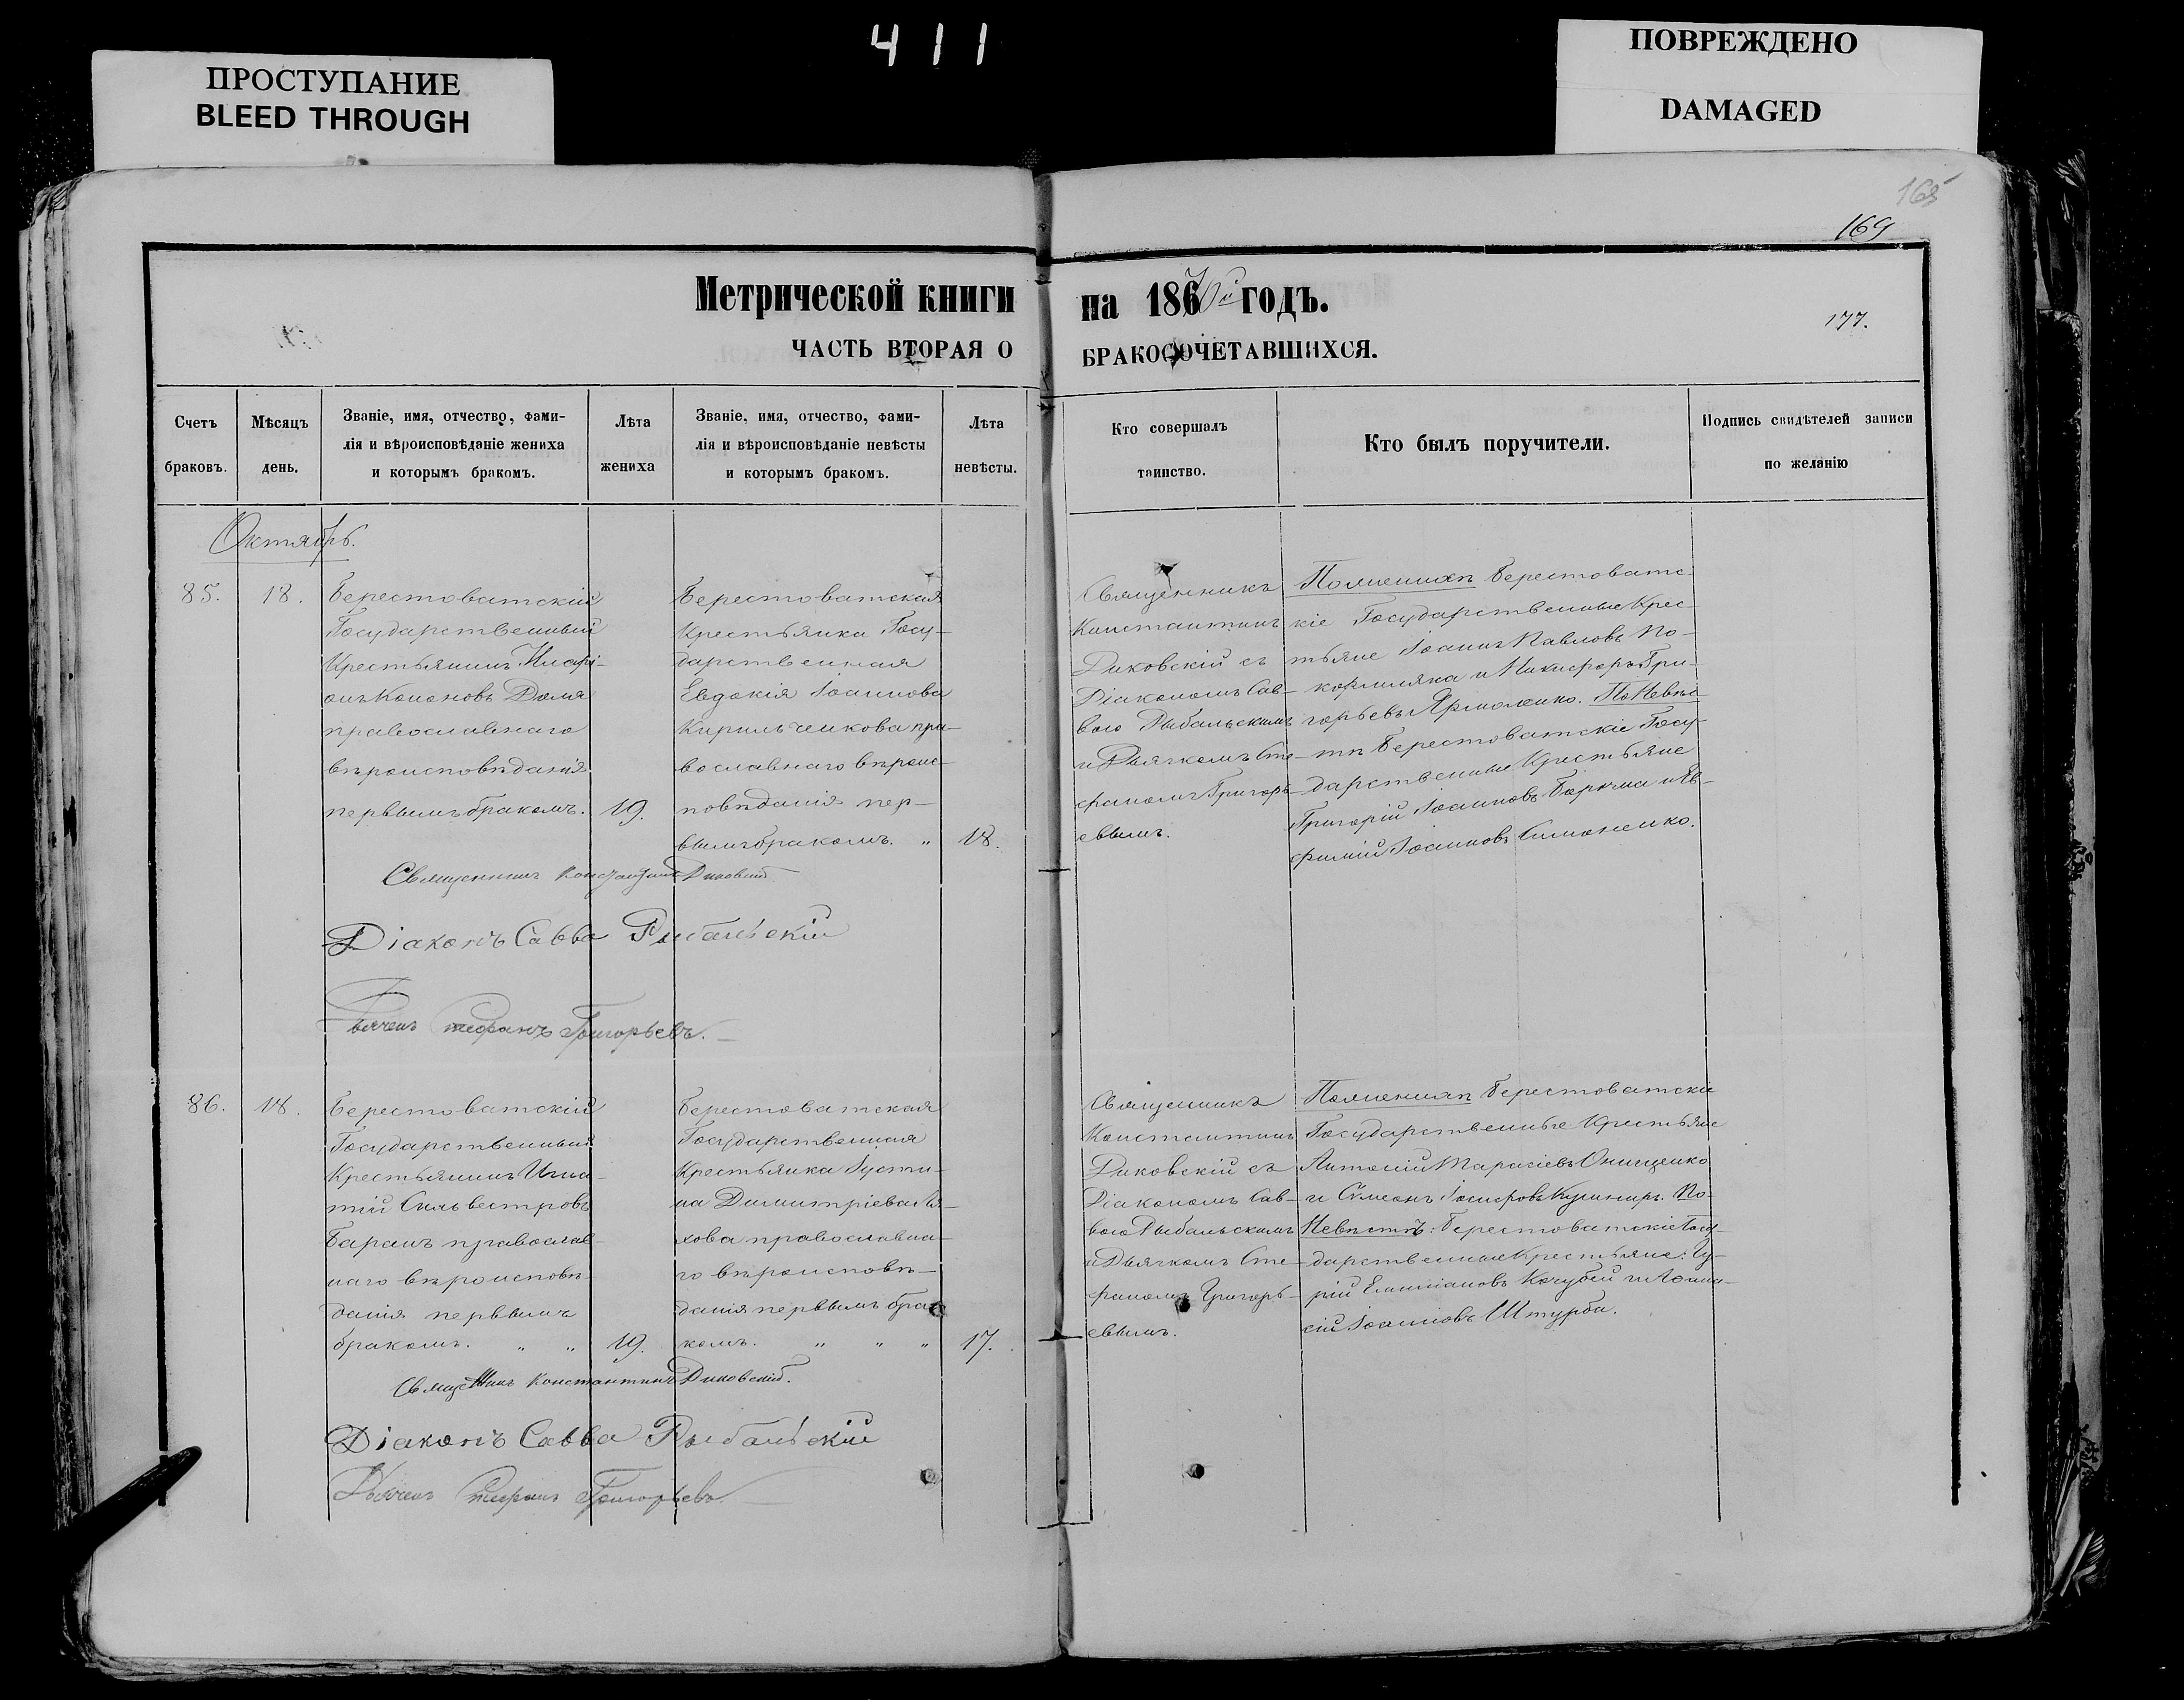 411
ПРОСТУПАНИЕ
BLEED THROUGH
ПОВРЕЖДЕНО
DAMAGED
165
169
Метрической книги
на 1870й годъ.
177.
ЧАСТЬ ВТОРАЯ О
БРАКОСОЧЕТАВШИХСЯ.
Счетъ
браковъ.
Мѣсяцъ
день.
Званіе, имя, отчество, фами-
лія и вѣроисповѣданіе жениха
и которымъ бракомъ.
Лѣта
жениха
Званіе, имя, отчество, фами-
лія и вѣроисповѣданіе невѣсты
и которымъ бракомъ.
Лѣта
невѣсты.
Кто совершалъ
таинство.
Кто былъ поручители.
Подпись свидѣтелей записи
по желанію
Октябрь.
85.
18.
Берестоватскій
Государственный
Крестьянинъ Иларі-
онъ Кононовъ Дюля
православнаго
вѣроисповѣданія
первымъ бракомъ.
19.
Берестоватская
Крестьянка Госу-
дарственная
Евдокія Іоаннова
Кирильченкова пра-
вославнаго вѣроис-
повѣданія пер-
вымъ бракомъ. "
18.
Священникъ
Константинъ
Диковскій съ
Діакономъ Сав-
вою Рыбальскимъ
и Дьячкомъ Сте-
фаномъ Григорь-
евымъ.
По женихѣ Берестоватс-
кіе Государственные Крес-
тьяне Іоаннъ Павловъ По-
кормляка и Никифоръ Гри-
горьевъ Ярмоленко. По Невѣс-
тѣ Берестоватскіе Госу-
дарственные Крестьяне
Григорій Іоанновъ и Ев-
фимій Іоанновъ Симоненко.
Священникъ Константинъ Диковскій
Діаконъ Савва Рыбальскій
Дьячекъ Стефанъ Григорьевъ.
86.
18.
Берестоватскій
Государственный
Крестьянинъ Игна-
тій Сильвестровъ
Баранъ православ-
наго вѣроисповѣ-
данія первымъ
бракомъ. " "
19.
Берестоватская
Государственная
Крестьянка Іусти-
на Димитріева Ля-
хова православна-
го вѣроисповѣ-
данія первымъ бра-
комъ. " " "
17.
Священникъ
Константинъ
Диковскій съ
Діакономъ Сав-
вою Рыбальскимъ
и Дьячкомъ Сте-
фаномъ Григорь-
евымъ.
По женихѣ Берестоватскіе
Государственные Крестьяне
Антоній Тарасіевъ Онищенко
и Сѵмеонъ Іосифовъ Кушниръ. По-
Невѣстѣ: Берестоватскіе Госу-
дарственные Крестьяне: Гу-
рій Емиліановъ Кочубей и Аѳана-
сій Іоанновъ Штурба.
Священникъ Константинъ Диковскій.
Діаконъ Савва Рыбальскій
Дьячекъ Стефанъ Григорьевъ